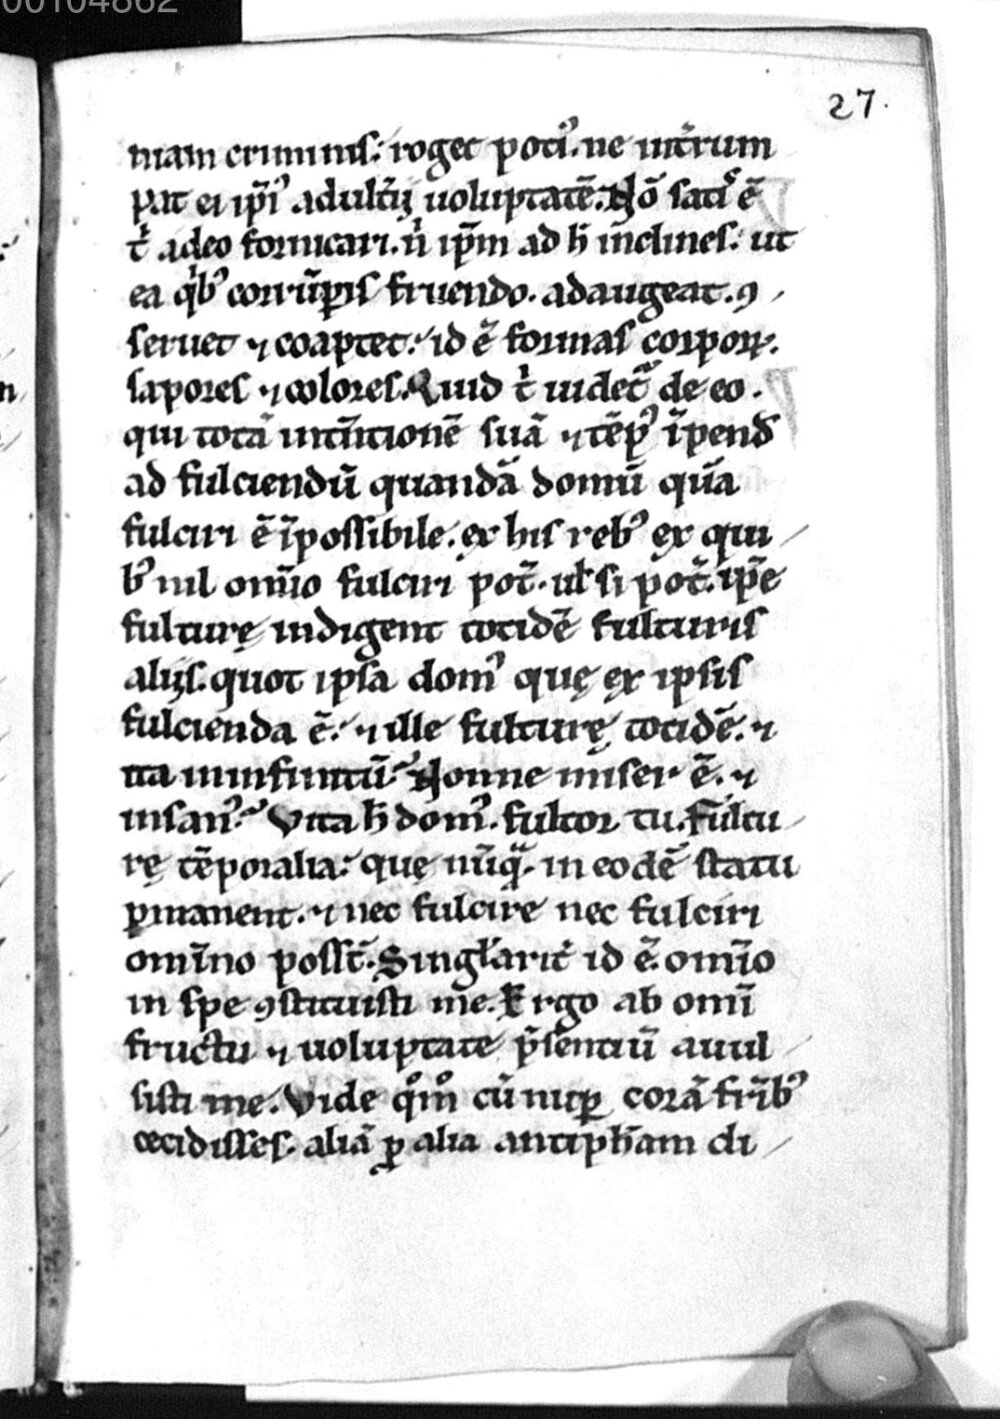 00104862
27.
niam criminis: roget poti᷒. ne iнt̄rum
pat ei ip̄i᷒ adult̄ij uoluptatē. Nō sati᷒ ē
t̄ adeo fornicari. n̄ ip̄m ad h̄ inclines: ut
ea qͥb᷒ corrūp̲is fruendo. adaugeat. ꝯ
seruet ⁊ coaptet: id ē formas corpoꝝ.
sapores ⁊ colores. Quid t̄ uidet᷑ de eo.
qui totā intēntionē suā ⁊ tēp᷒ īpend̄
ad fulciendū quandā domū quā
fulciri ē īpossibile. ex his reb᷒ ex qui
b᷒ nil om̄io fulciri pot̄. ul̄ si pot̄. ip̄e
fulturę indigent totidē fulturis
alijs. quot ipsa dom᷒ quę ex ipsis
fulcienda ē: ⁊ ille fulturę totidē. ⁊
ita in infinitū: Nonne miser ē. ⁊
insan᷒: Vita h̄ dom᷒. fultor tu. fultu
rę tēporalia: quę nūqᷓ. in eodē statu
ꝑmanent. ⁊ nec fulcire nec fulciri
omīno possт̄. Singl̄arit̄ id ē. om̄io
in spe ꝯstituisti me. Ergo ab omī
fructu ⁊ uoluptate p̄sentiū auul
sisti me. Vide qͦmͦ cū nuꝑ corā fr̄ib᷒
cecidisses. aliā ꝓ alia antiph̄am di